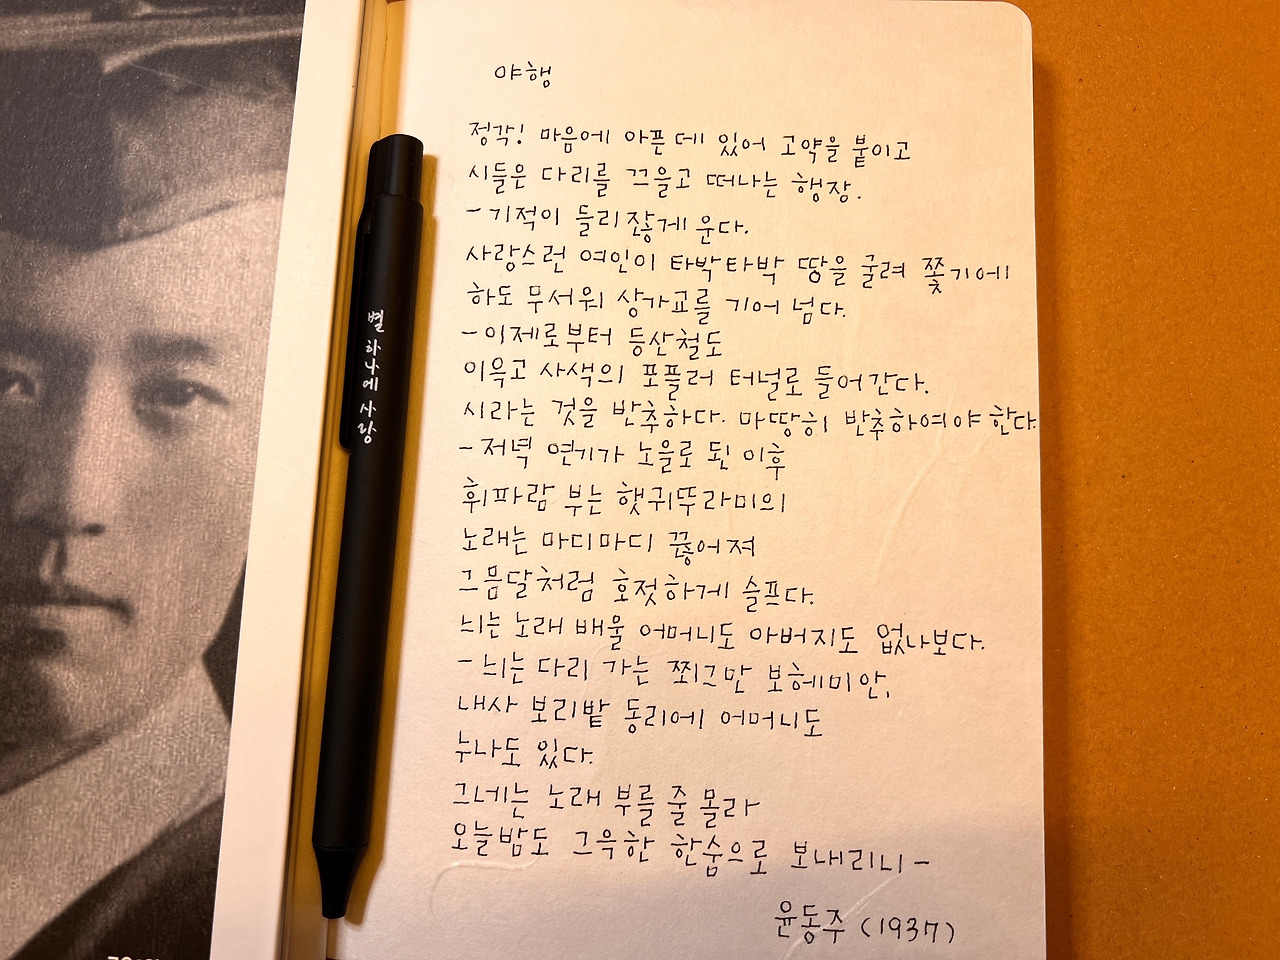 야행
정각! 마음에 아픈데 있어 고약을 붙이고
시들은 다리를 끄을고 떠나는 행장.
- 기적이 들리잖게 운다.
사랑스런 여인이 타박타박 땅을 굴려 쫓기에
하도 무서워 상가교를 기어 넘다.
- 이제로부터 등산철도
이윽고 사색의 포플러 터널로 들어간다.
시라는 것을 반추하다. 마땅히 반추하여야 한다.
- 저녁 연기가 노을로 된 이후
휘파람 부는 햇귀뚜라미의
노래는 마디마디 끊어져
그믐달처럼 호젓하게 슬프다.
늬는 노래 배울 어머니도 아버지도 없나보다.
- 늬는 다리 가는 쬐그만 보헤미안,
내사 보리밭 동리에 어머니도
누나도 있다.
그네는 노래 부를 줄 몰라
오늘밤도 그윽한 한숨으로 보내리니 -
윤동주 (1937)
별 하나에 사랑